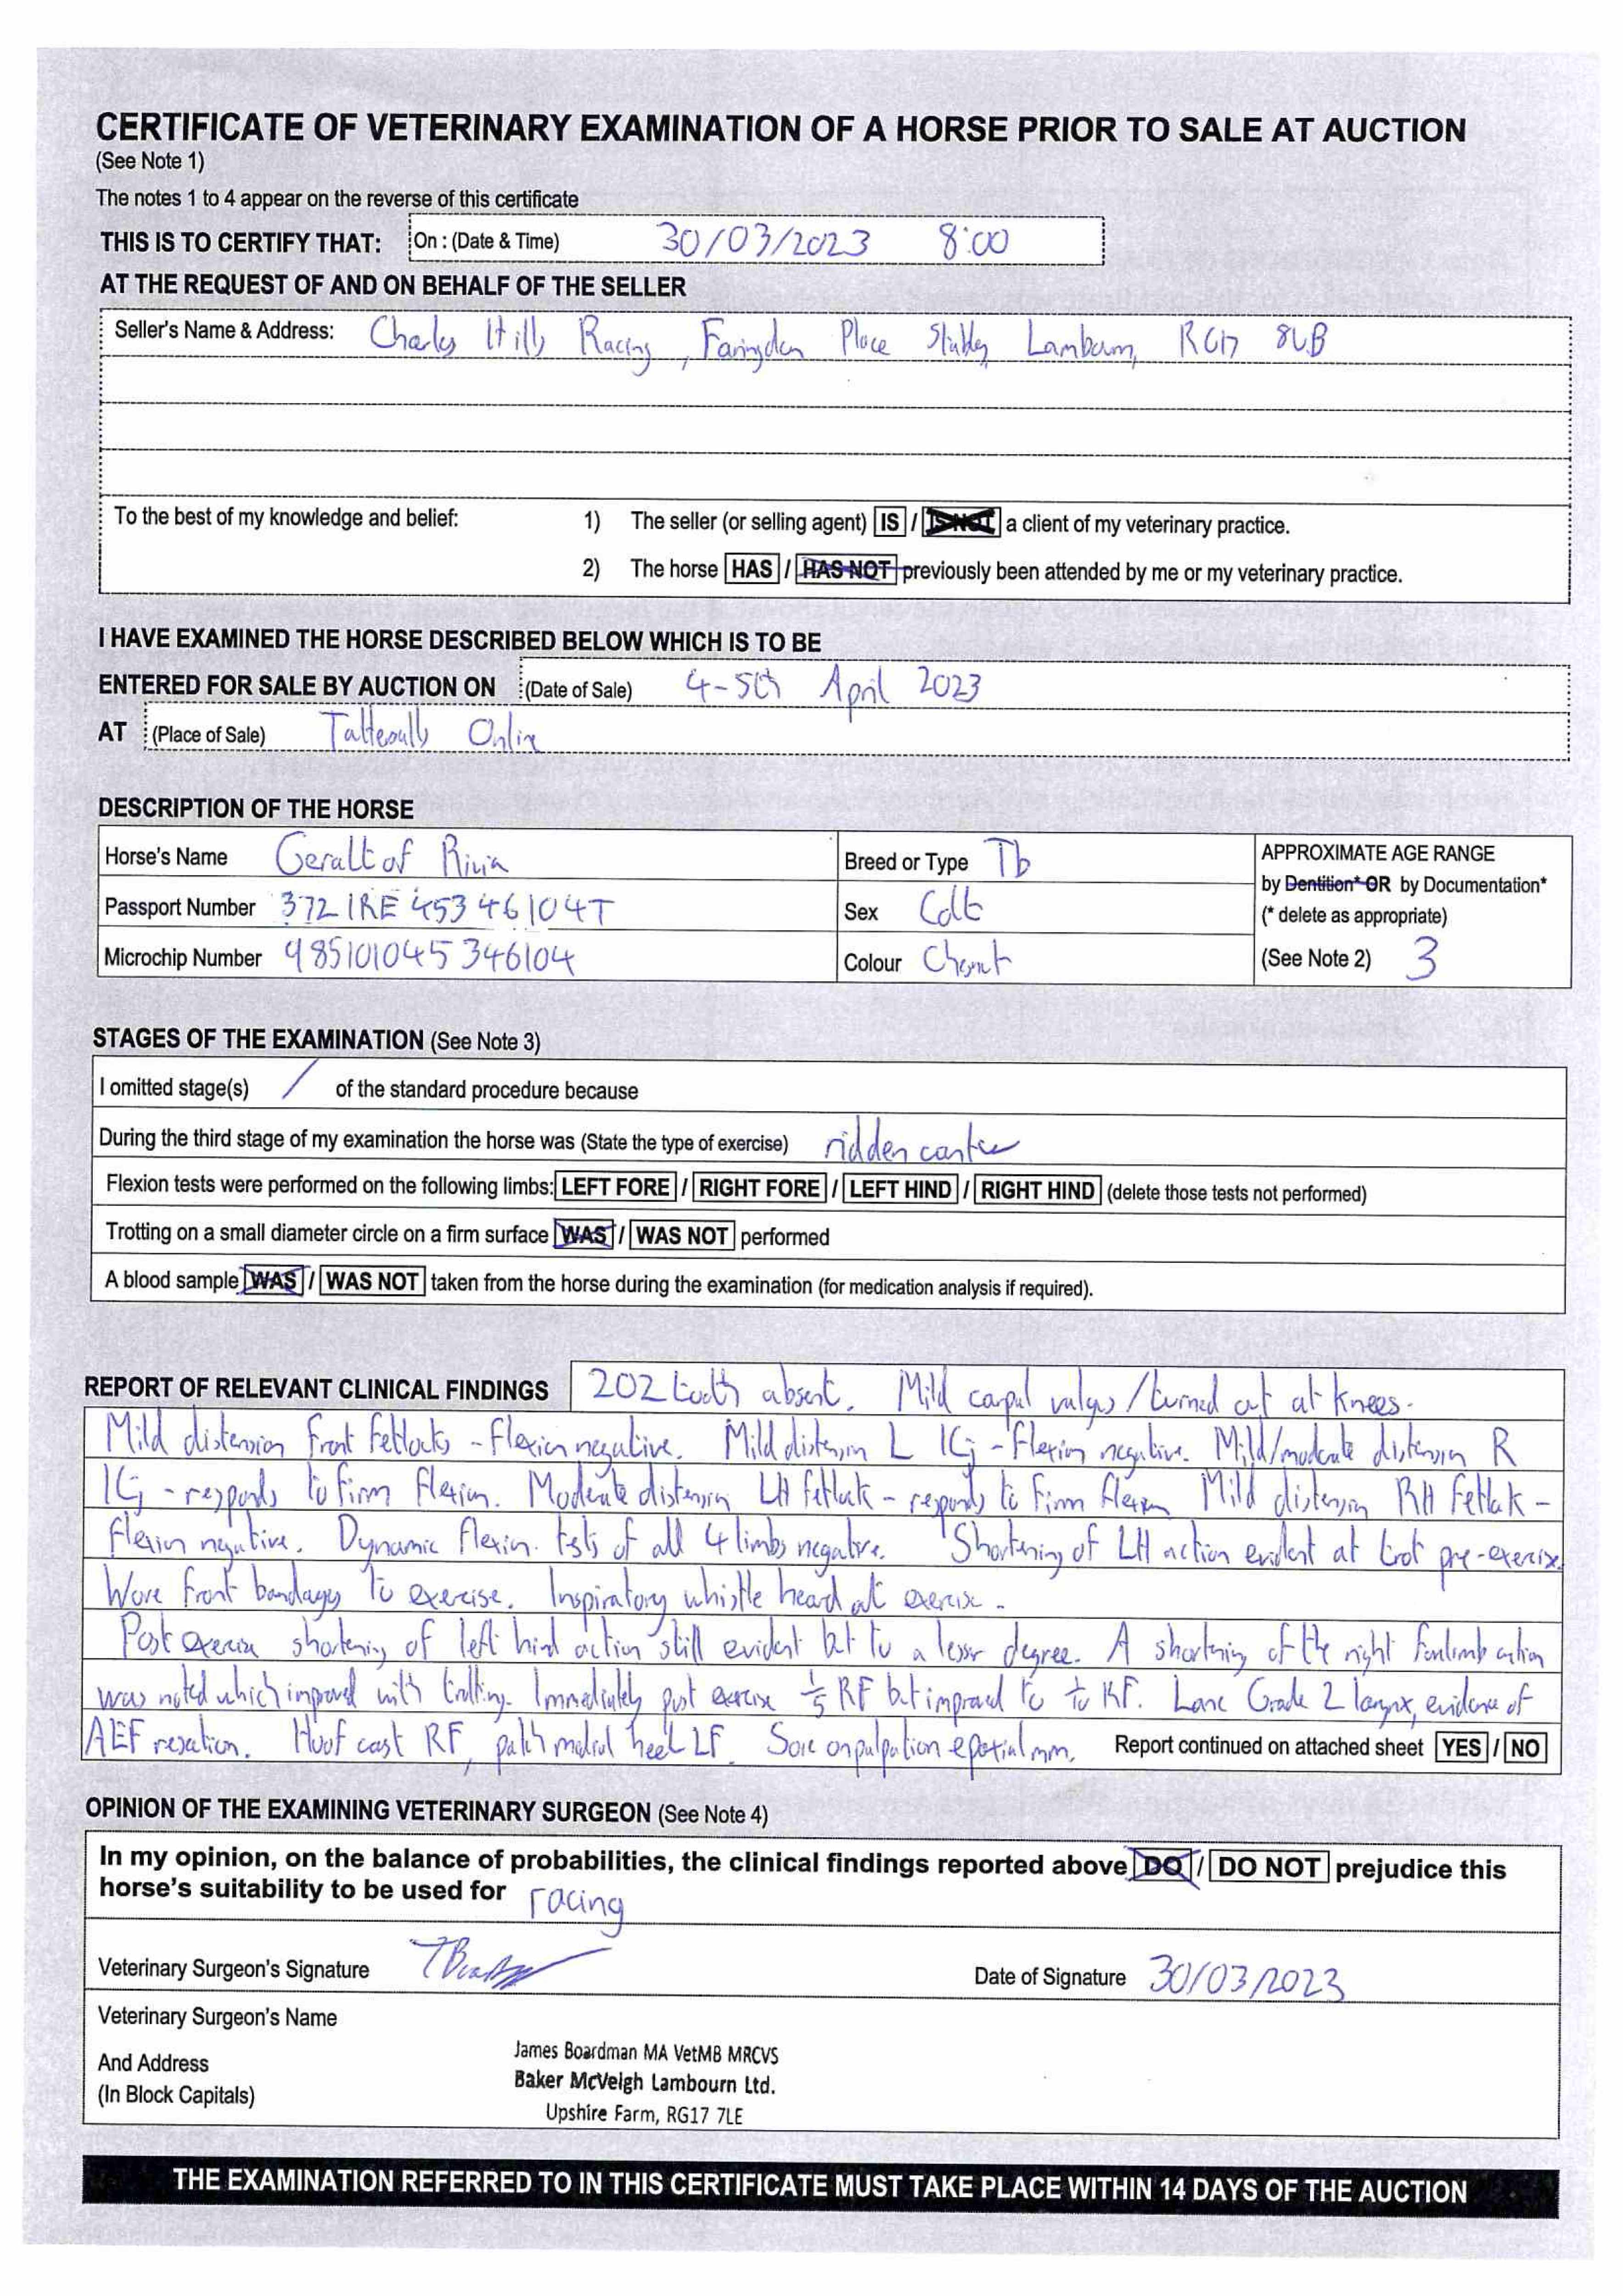 CERTIFICATE OF VETERINARY EXAMINATION OF A HORSE PRIOR TO SALE AT AUCTION
(See Note 1)
The notes 1 to 4 appear on the reverse of this certificate
THIS IS TO CERTIFY THAT: On : (Date & Time) 30/03/2023 8:00
AT THE REQUEST OF AND ON BEHALF OF THE SELLER
Seller's Name & Address: Charles Hills Racing, Faringdon Place Stables, Lambourn, RG17 8UB
To the best of my knowledge and belief: 1) The seller (or selling agent) IS / IS NOT a client of my veterinary practice.
2) The horse HAS / HAS NOT previously been attended by me or my veterinary practice.
I HAVE EXAMINED THE HORSE DESCRIBED BELOW WHICH IS TO BE
ENTERED FOR SALE BY AUCTION ON (Date of Sale) 4-5th April 2023
AT (Place of Sale) Tattersalls Online
DESCRIPTION OF THE HORSE
Horse's Name Geralt of Rivia Breed or Type Tb APPROXIMATE AGE RANGE
by Dentition* OR by Documentation*
Passport Number 372 IRE 45346104T Sex Colt (* delete as appropriate)
Microchip Number 985101045346104 Colour Chesnut (See Note 2) 3
STAGES OF THE EXAMINATION (See Note 3)
I omitted stage(s) / of the standard procedure because
During the third stage of my examination the horse was (State the type of exercise) ridden canter
Flexion tests were performed on the following limbs: LEFT FORE / RIGHT FORE / LEFT HIND / RIGHT HIND (delete those tests not performed)
Trotting on a small diameter circle on a firm surface WAS / WAS NOT performed
A blood sample WAS / WAS NOT taken from the horse during the examination (for medication analysis if required).
REPORT OF RELEVANT CLINICAL FINDINGS 202 tooth absent. Mild carpal valgus / turned out at knees.
Mild distension front fetlocks - flexion negative. Mild distension L ICj - flexion negative. Mild/moderate distension R
ICj - responds to firm flexion. Moderate distension LH fetlock - responds to firm flexion Mild distension RH fetlock -
flexion negative. Dynamic flexion tests of all 4 limbs negative. Shortening of LH action evident at trot pre-exercise.
Wore front bandages to exercise. Inspiratory whistle heard at exercise.
Post exercise shortening of left hind action still evident but to a lesser degree. A shortening of the right forelimb action
was noted which improved with trotting. Immediately post exercise 1/5 RF but improved to RF. Lane Grade 2 larynx, evidence of
AEF resection. Hoof cast RF, patch medial heel LF. Sore on palpation epaxial mm. Report continued on attached sheet YES / NO
OPINION OF THE EXAMINING VETERINARY SURGEON (See Note 4)
In my opinion, on the balance of probabilities, the clinical findings reported above DO / DO NOT prejudice this
horse's suitability to be used for racing
Veterinary Surgeon's Signature Date of Signature 30/03/2023
Veterinary Surgeon's Name
And Address
(In Block Capitals)
James Boardman MA VetMB MRCVS
Baker McVeigh Lambourn Ltd.
Upshire Farm, RG17 7LE
THE EXAMINATION REFERRED TO IN THIS CERTIFICATE MUST TAKE PLACE WITHIN 14 DAYS OF THE AUCTION